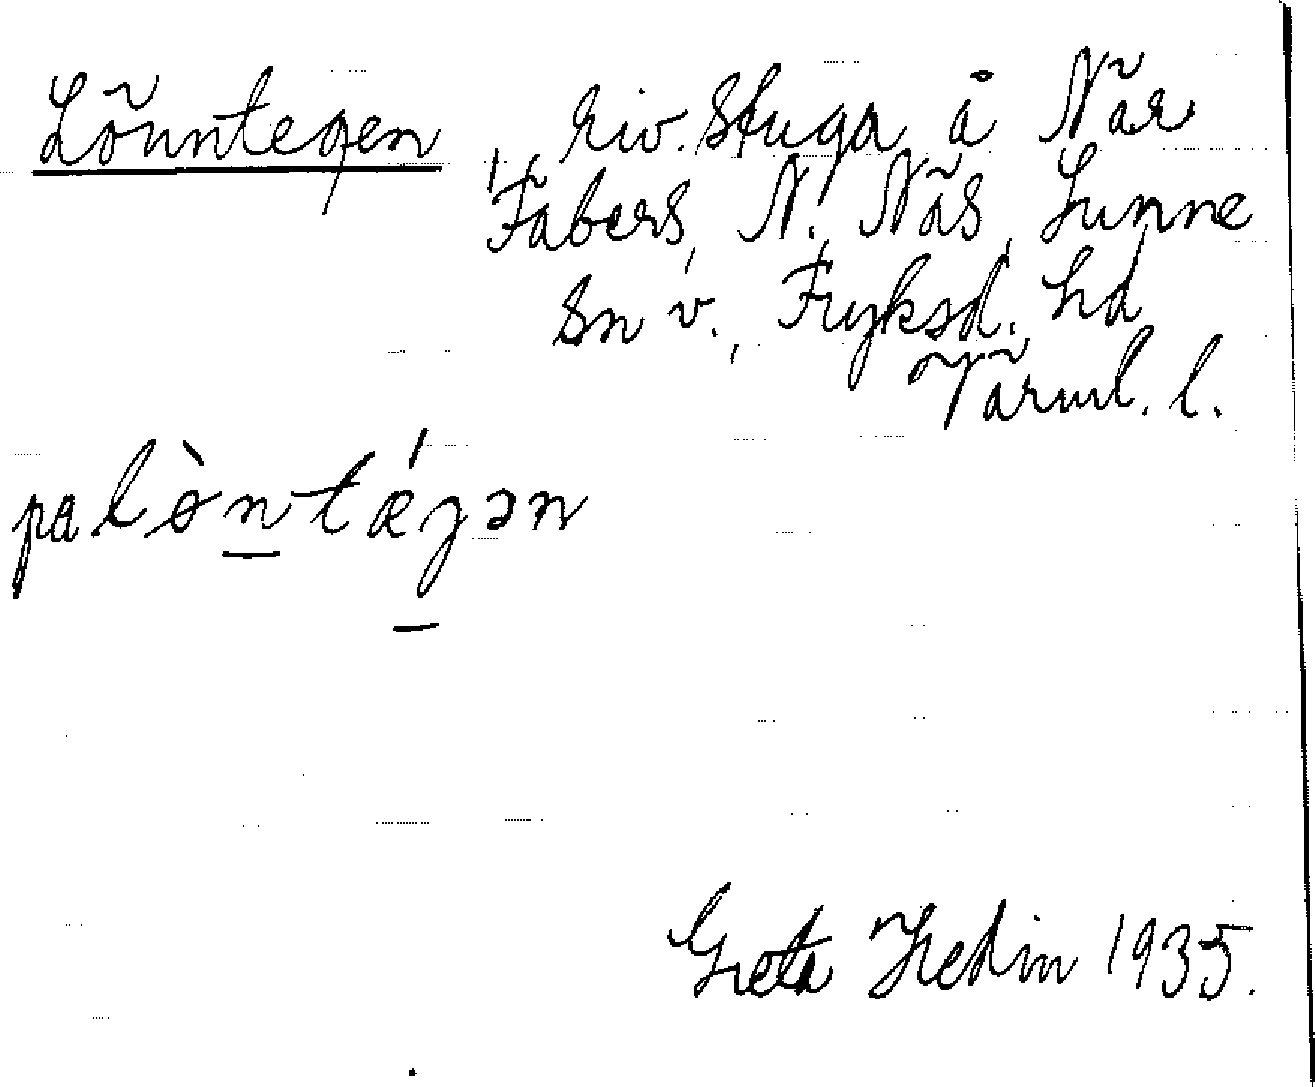 Lönntegen, riv. stuga å När
Fabers, N. Näs, Sunne
sn v., Fryksd. hd
Värml. l.
pa lòntǽgən
Greta Hedin 1935.